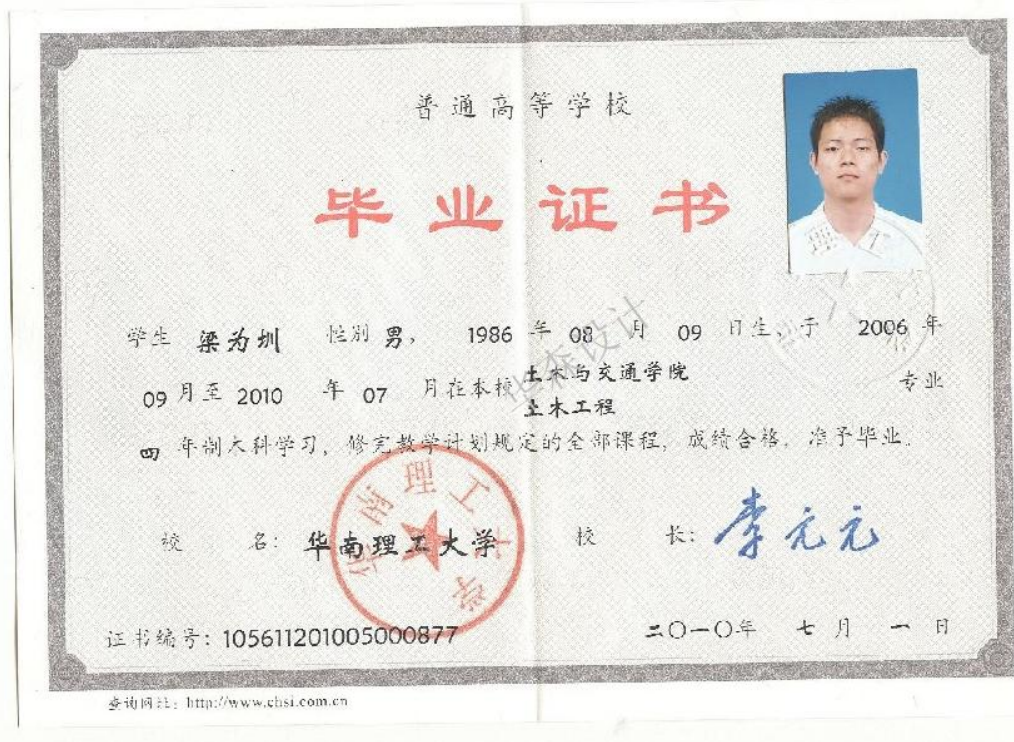 普通高等学校
毕业证书
学生 梁为圳 性别 男， 1986 年 08 月 09 日生，于 2006 年
09 月至 2010 年 07 月在本校 土木与交通学院 专业
土木工程
四 年制本科学习，修完教学计划规定的全部课程，成绩合格，准予毕业。
校 名：华南理工大学 校 长：李元元
华南理工大学
证书编号：105611201005000877 二〇一〇年 七 月 一 日
查询网址：http://www.chsi.com.cn
华森设计
理工